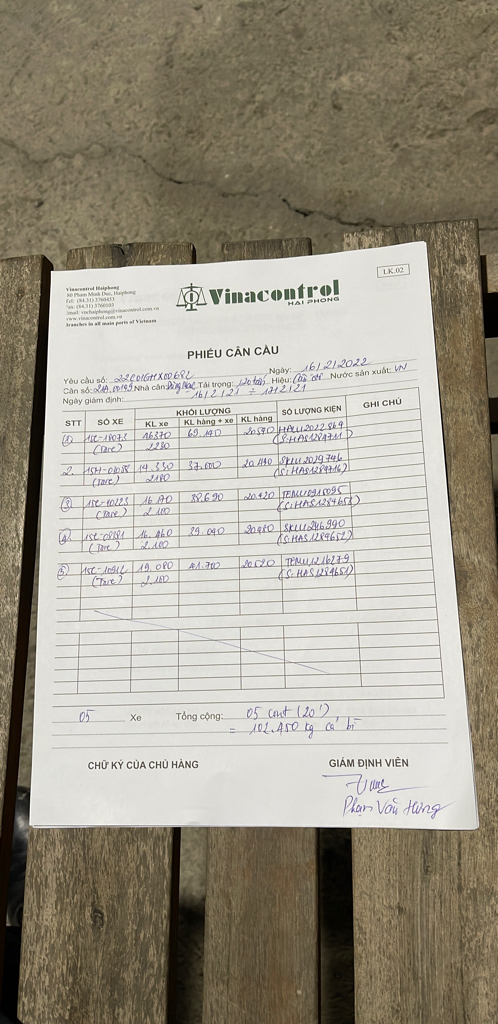 LK.02
Vinacontrol Haiphong
80 Pham Minh Duc, Haiphong
Tel: (84.31) 3760453
Fax: (84.31) 3760103
Email: vnchaiphong@vinacontrol.com.vn
www.vinacontrol.com.vn
Branches in all main parts of Vietnam
Vinacontrol
HAI PHONG
PHIẾU CÂN CẦU
Yêu cầu số: Ngày: 16/2/2022
Cân số: Nhà cân: Tải trọng: 120 tấn Hiệu: Nước sản xuất: VN
Ngày giám định: 16/2/21 ÷ 17/2/21
STT SỐ XE KHỐI LƯỢNG SỐ LƯỢNG KIỆN GHI CHÚ
KL xe KL hàng + xe KL hàng
1 15C-18073 16370 20.590
(Tare) 2230 (S:HAS1284711)
2. 14.330 37.600 SKLU2029746
(Tare) 2180 (S:HAS1284716)
3 15C-10223 16.170 38.690 20.420
(Tare) 2.100 (S:HAS1284653)
4 16.460 39.040 20.480
(Tare) 2.100 (S:HAS1284652)
5 19.080 41.700 20.520 TEMU1216279
(Tare) 2.100 (S:HAS1284651)
05 Xe Tổng cộng: 05 cont (20')
= 102.450 kg cả bì
CHỮ KÝ CỦA CHỦ HÀNG GIÁM ĐỊNH VIÊN
Phạm Văn Hưng